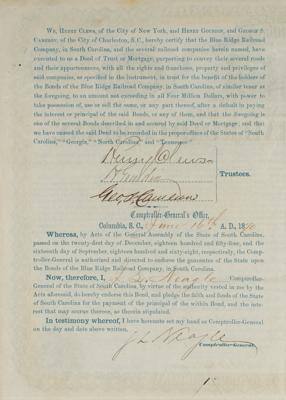 We, Henry Clews, of the City of New York, and Henry Gourdin, and George S.
Cameron, of the City of Charleston, S.C., hereby certify that the Blue Ridge Railroad
Company, in South Carolina, and the several railroad companies herein named, have
executed to us a Deed of Trust or Mortgage, purporting to convey their several roads
and their appurtenances, with all the rights and franchises, property and privileges of
said companies, as specified in the instrument, in trust for the benefit of the holders
of the Bonds of the Blue Ridge Railroad Company, in South Carolina, of similar tenor as
the foregoing, to an amount not exceeding in all Four Million Dollars, with power to
take possession of, use or sell the same, or any part thereof, after a default in paying
the interest or principal of the said Bonds, or any of them, and that the foregoing is
one of the several Bonds described in and secured by said Deed or Mortgage; and that
we have caused the said Deed to be recorded in the proper offices of the States of "South
Carolina," "Georgia," "North Carolina" and "Tennessee."
Henry Clews
H Gourdin
Geo. S. Cameron
Trustees.
Comptroller-General's Office,
Columbia, S. C., A. D., 18
Whereas, by Acts of the General Assembly of the State of South Carolina,
passed on the twenty-first day of December, eighteen hundred and fifty-four, and the
sixteenth day of September, eighteen hundred and sixty-eight, respectively, the Comp-
troller-General is authorized and directed to endorse the guarantee of the State upon
the Bonds of the Blue Ridge Railroad Company, in South Carolina.
Now, therefore, I, J L Neagle Comptroller-
General of the State of South Carolina, by virtue of the authority vested in me by the
Acts aforesaid, do hereby endorse this Bond, and pledge the faith and funds of the State
of South Carolina for the payment of the principal of the within Bond, and the inter-
est that may accrue thereon, as therein stipulated.
In testimony whereof, I have hereunto set my hand as Comptroller-General
on the day and date above written.
J L Neagle
Comptroller-General.